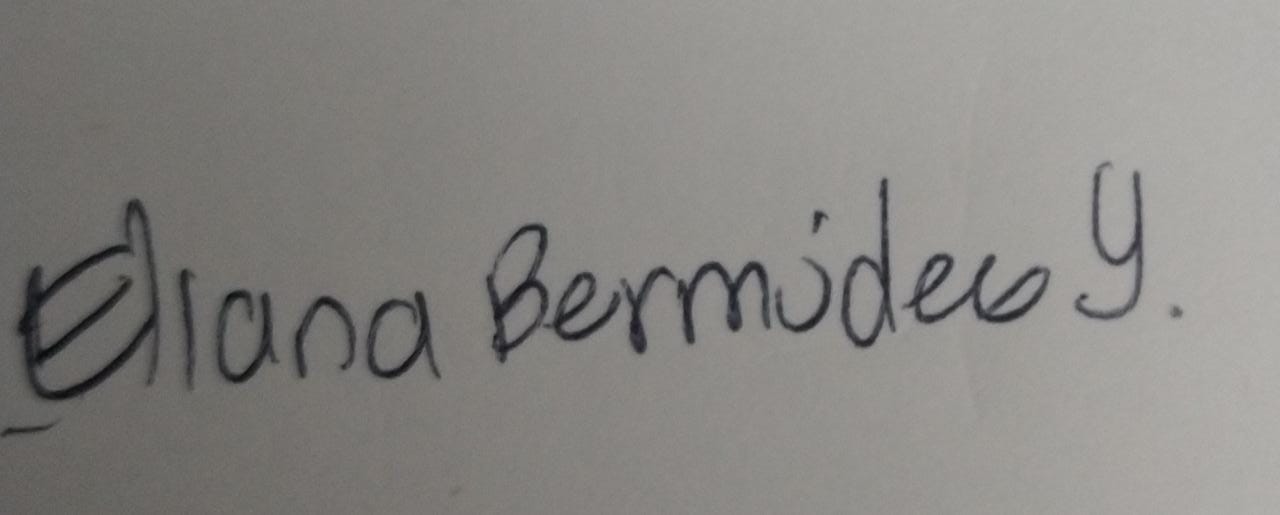 Eliana Bermúdes Y.